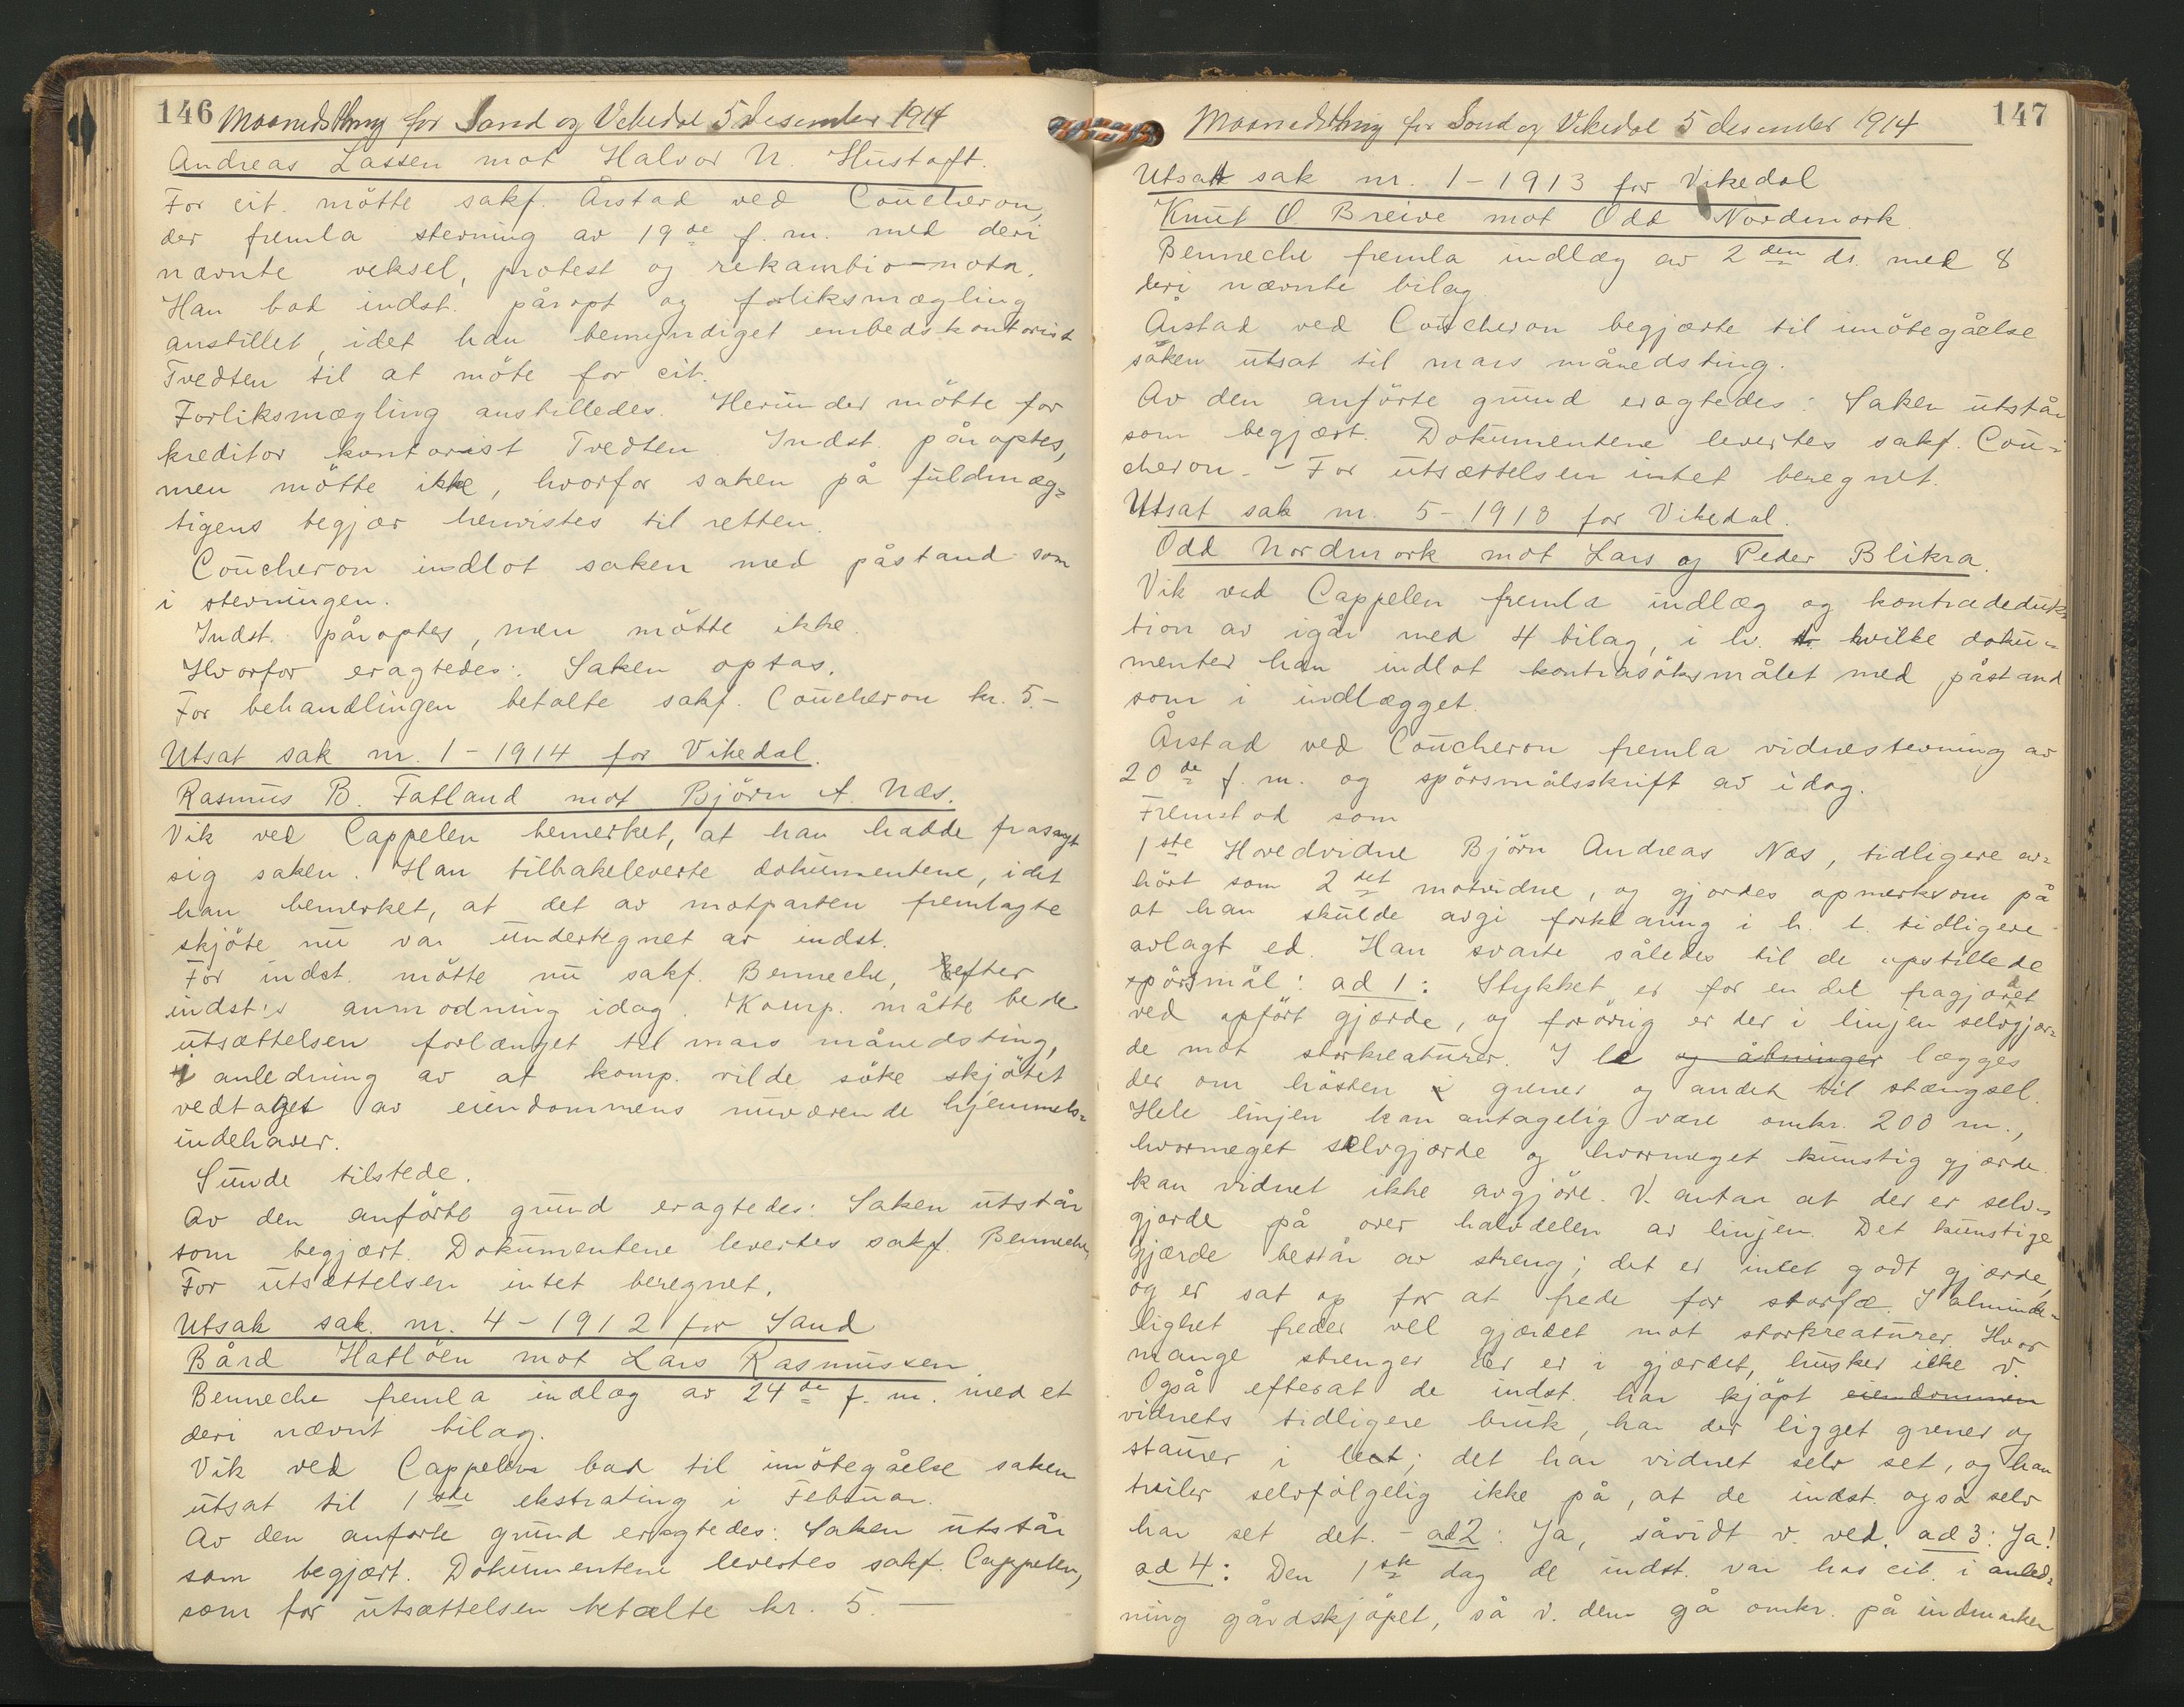 146 Maanedsthing for Sand og Vikedal 5 desember 1914
Andreas Lassen mot Halvor N. Hustoft.
For cit. mötte sakf. Årstad ved Coucheron,
der fremla stevning av 19de f. m. med deri
nævnte veksel, protest og rekambio-nota.
Han bad indst. påropt og forliksmægling
anstillet, idet han bemyndiget embedskontorist
Tvedten til at möte for cit.
Forliksmægling anstilledes. Herunder mötte for
kreditor kontorist Tvedten. Indst. påroptes,
men mötte ikke, hvorfor saken på fuldmæg-
tigens begjær henvistes til retten.
Coucheron indlot saken med påstand som
i stevningen.
Indst. påroptes, men mötte ikke.
Hvorfor eragtedes: Saken optas.
For behandlingen betalte sakf. Coucheron kr. 5.-
Utsat sak nr. 1 - 1914 for Vikedal.
Rasmus B. Fatland mot Björn A. Næs.
Vik ved Cappelen bemerket, at han hadde frasagt
sig saken. Han tilbakeleverte dokumentene, idet
han bemerket, at det av motparten fremlagte
skjöte nu var undertegnet av indst.
For indst. mötte nu sakf. Benneche, efter
indst's anmodning idag. Komp. måtte bede
utsættelsen forlænget til mars månedsting,
i anledning av at komp. vilde söke skjötet
vedtaget av eiendommens nuværende hjemmels-
indehaver.
Sunde tilstede.
Av den anförte grund eragtedes: Saken utstår
som begjært. Dokumentene levertes sakf. Benneche,
For utsættelsen intet beregnet.
Utsat sak nr. 4 - 1912 for Sand
Bård Hatlöen mot Lars Rasmussen
Benneche fremla indlæg av 24de f. m. med et
deri nævnt bilag.
Vik ved Cappelen bad til imötegåelse saken
utsat til 1ste ekstrating i Februar.
Av den anförte grund eragtedes: Saken utstår
som begjært. Dokumentene levertes sakf. Cappelen,
som for utsættelsen betalte kr. 5. —
Maanedsthing for Sand og Vikedal 5 desember 1914 147
Utsatt sak nr. 1 - 1913 for Vikedal
Knut O. Breive mot Odd Nordmork.
Benneche fremla indlæg av 2den ds. med 8
deri nævnte bilag.
Årstad ved Coucheron begjærte til imötegåelse
saken utsat til mars månedsting.
Av den anförte grund eragtedes: Saken utstår
som begjært. Dokumentene levertes sakf. Cou-
cheron. - For utsættelsen intet beregnet.
Utsat sak nr. 5 - 1913 for Vikedal.
Odd Nordmork mot Lars og Peder Blikra.
Vik ved Cappelen fremla indlæg og kontradeduk-
tion av igår med 4 bilag, i hv. hvilke doku-
menter han indlot kontrasöksmålet med påstand
som i indlægget.
Årstad ved Coucheron fremla vidnestevning av
20de f. m. og spörsmålsskrift av idag.
Fremstod som
1ste Hovedvidne Björn Andreas Næs, tidligere av-
hört som 2det motvidne, og gjordes opmerksom på
at han skulde avgi forklaring i h. t. tidligere
avlagt ed. Han svarte således til de opstillede
spörsmål: ad 1: Stykket er for en del fragjæret
ved opfört gjærde, og forövrig er der i linjen selvgjær-
de mot storkreaturer. I le og åbninger lægges
der om hösten grener og andet til stængsel.
Hele linjen kan antagelig være omkr. 200 m.,
hvormeget selvgjærde og hvormeget kunstig gjærde
kan vidnet ikke avgjöre. V. antar at der er selv-
gjærde på over halvdelen av linjen. Det kunstige
gjærde består av streng; det er intet godt gjærde,
og er sat op for at frede for storfæ. I alminde-
lighet freder vel gjærdet mot storkreaturer. Hvor
mange strenger der er i gjærdet, husker ikke v.
Også efterat de indst. har kjöpt eiendommen
vidnets tidligere bruk, har der ligget grener og
staurer i leet; det har vidnet selv set, og han
tviler selvfölgelig ikke på, at de indst. også selv
har set det. - ad 2: Ja, såvidt v. ved. ad 3: Ja!
ad 4: Den 1ste dag de indst. var hos cit. i anled-
ning gårdskjöpet, så v. dem gå omkr. på indmarken